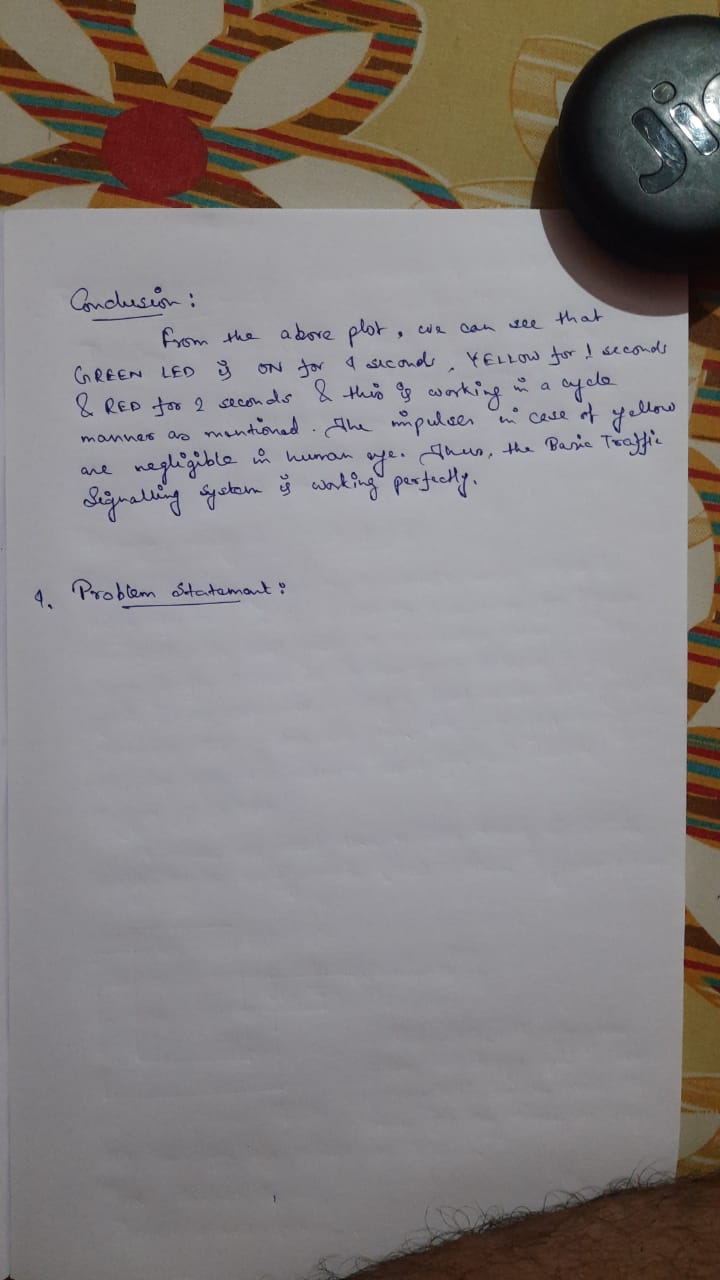 Jio
Conclusion:
From the above plot, we can see that
GREEN LED is ON for 4 seconds, YELLOW for 1 seconds
& RED for 2 seconds & this is working in a cycle
manner as mentioned. The impulses in case of yellow
are negligible in human eye. Thus, the Basic Traffic
Signalling System is working perfectly.
4. Problem Statement: